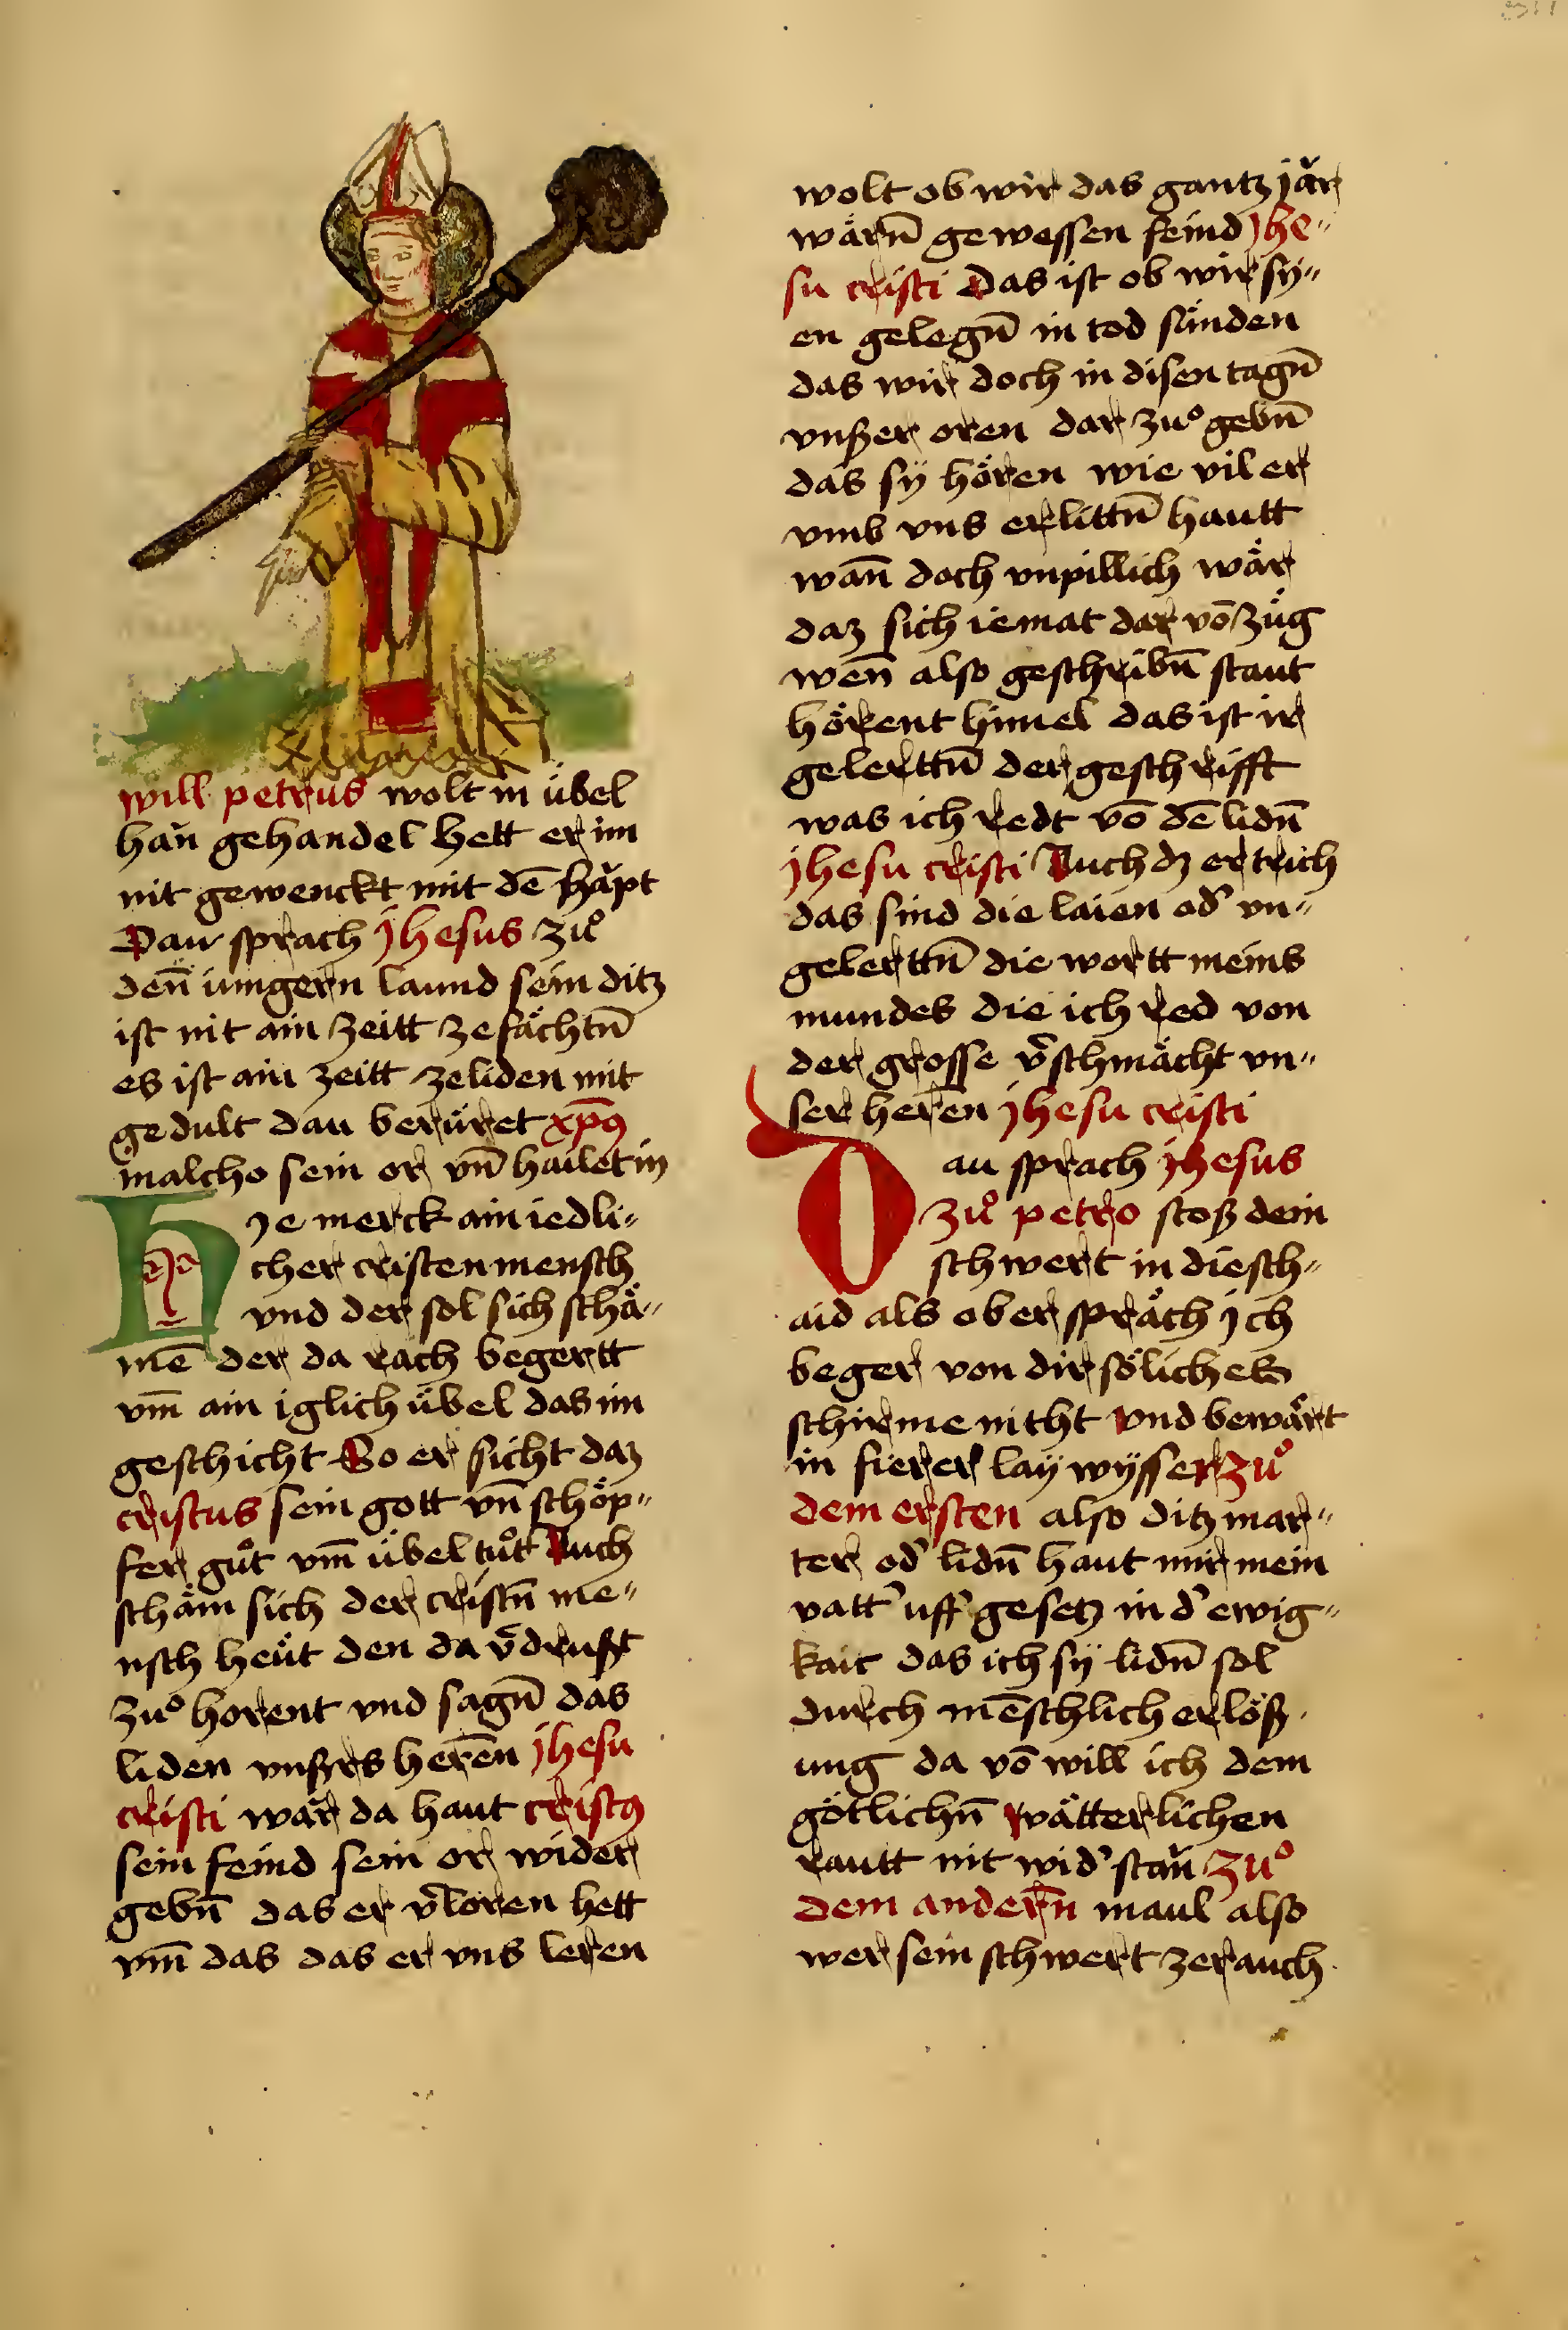 will petrus wolt in übel
han gehandel hett er im
nit gewenckt mit dē hăpt
Dau sprach jhesus zuͦ
den̄ iungern laund sein ditz
ist nit ain zeitt ze fächtn̄
es ist ain zeitt ze liden mit
gedult dau berüret xp̄ꝯ
malcho sein or vn̄ hailet in
Hie merck ain iedli„
cher cristenmensch
vnd der sol sich schä„
mē der da rach begertt
vm̄ ain iglich übel das im
geschicht So er sicht daz
cristus sein gott vn̄ schöp„
fer guͦt vm̄ übel tuͦt Auch
schäm sich der cristn̄ me„
nsch heüt den da v̄druſzt
zuͦ horent vnd sagn̄ das
liden vnſzrs herēn jhesu
cristi wär da haut cristꝯ
sein feind sein or wider
gebn̄ das er v̄loren hett
vm̄ das das er vns leren
wolt ob wir das gantz jăr
wärn̄ gewessen feind jhe„
su cristi das ist ob wir sÿ„
en gelegn̄ in tod sünden
das wir doch in disen tagn̄
vnſzer oren dar zuͦ gebn̄
das sÿ hören wie vil er
vmb vns erlittn̄ hautt
wan̄ doch vnpillich wär
daz sich iemat dar vō züg
wen̄ also geschribn̄ staut
hörent himel das ist ir
gelerttn̄ der geschrifft
was ich redt vō dē lidn̄
jhesu cristi Auch dz ertrich
das sind die laien od' vn„
gelerttn̄ die wortt meins
mundes die ich red von
der grosse v̄schmächt vn„
ser herēn jhesu cristi
Dau sprach jhesus
zuͦ petro stoſz dein
schwert in die sch„
aid als ober sprăch jch
beger von dir sölichets
schirme nitht vnd bewärt
in fierer laÿ wÿsser zuͦ
dem ersten also ditz mar„
ter od' lidn̄ haut mir mein
vatt' uff gesetz in d' ewig„
kait das ich sÿ lidn̄ sol
durch mēschlich erlöſz
ung da vō will ich dem
götlichn̄ wätterlichen
rautt nit wid' stăn zuͦ
dem andern̄ maul also
wer sein schwert ze rauch